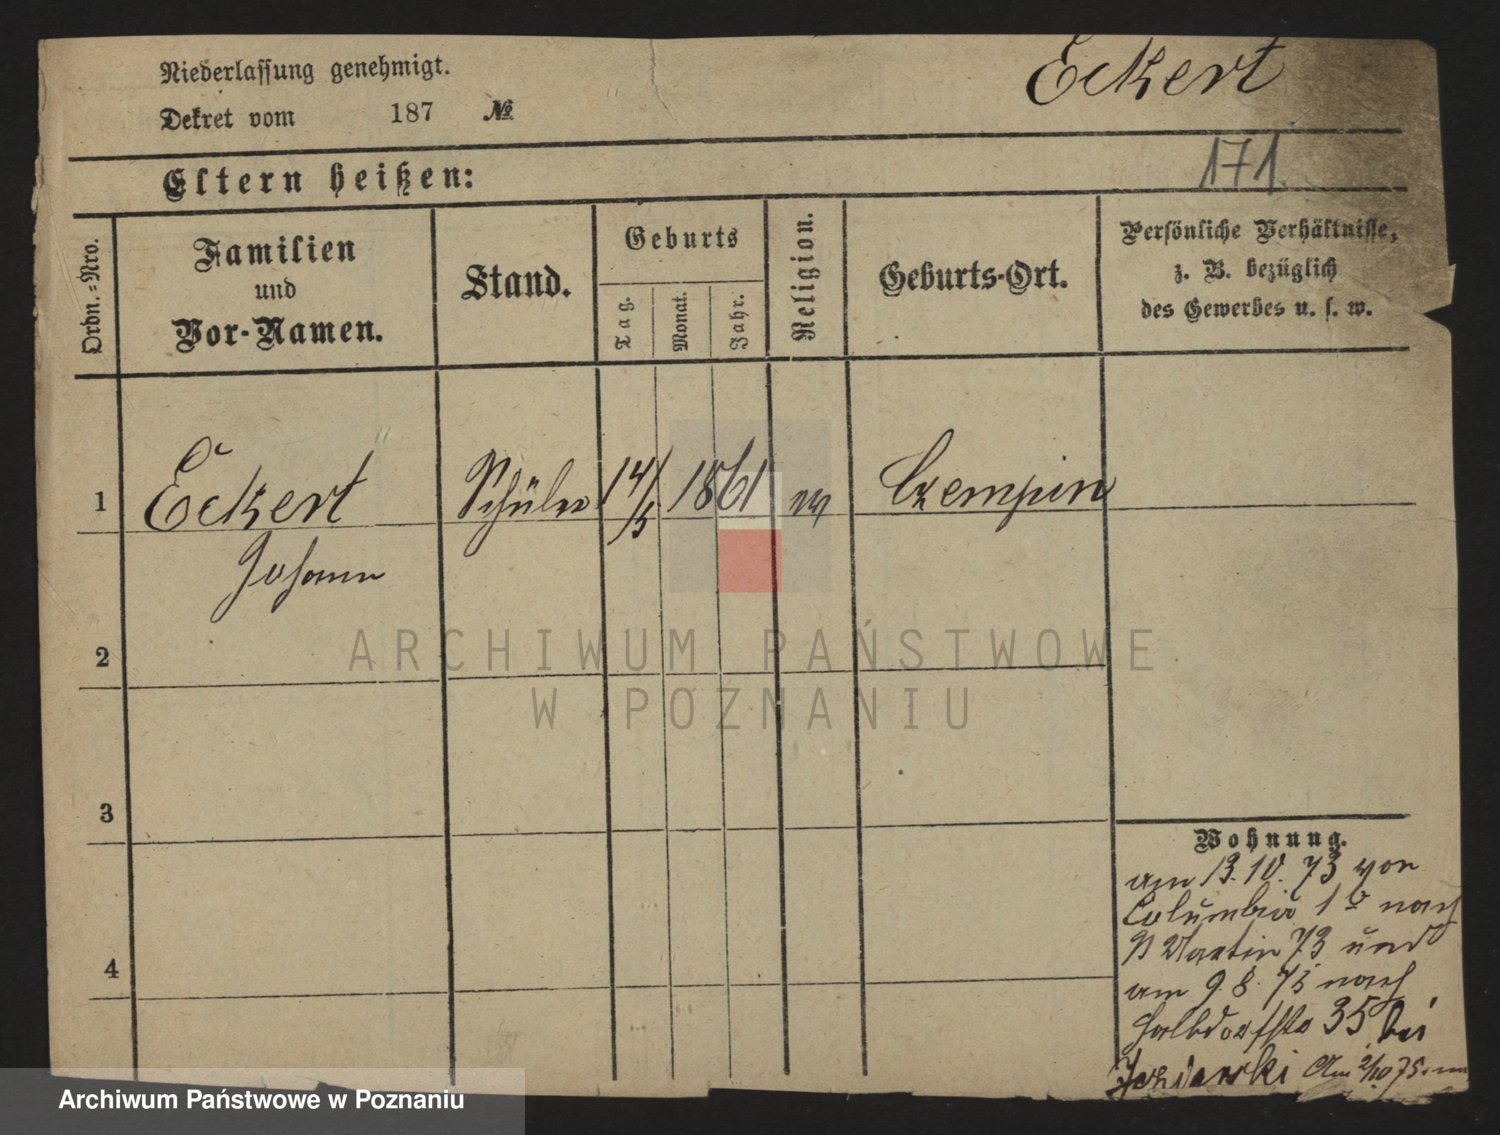 Eckert
Niederlassung genehmigt.
Dekret vom 187 №
171
Eltern heißen:
Ordn.-Nro.
Familien
und
Vor-Namen.
Stand.
Geburts
Tag.
Monat.
Jahr.
Religion.
Geburts-Ort.
Persönliche Verhältnisse,
z. B. bezüglich
des Gewerbes u. s. w.
1 Eckert Schüler 14/5 1861 Czempin
Johann
2
3
4
Wohnung.
am 13.10.73 von
Columbia 1 nach
St Martin 73 und
am 9.8.75 nach
Halbdorfstr 35 bei
Am 2/10 75
ARCHIWUM PAŃSTWOWE
W POZNANIU
Archiwum Państwowe w Poznaniu